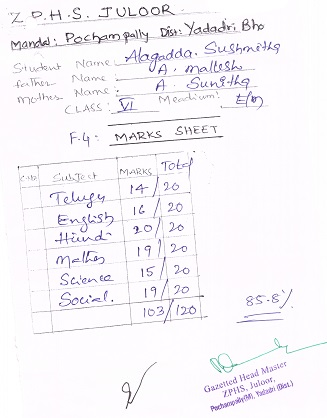 Z.P.H.S. JULOOR
Mandal: Pochampally Dist: Yadadri Bho
Student Name: Alagadda. Sushmitha
father Name: A. mallesh
mother Name: A. Sunitha
CLASS: VI Meadium: E/m
F-4: MARKS SHEET
SubJect MARKS Total
Telugu 14/20
English 16/20
Hindi 20/20
Mathes 19/20
Science 15/20
Social. 19/20
103/120
85.8%
Gazetted Head Master
ZPHS, Juloor,
Pochampally(M), Yadadri (Dist.)